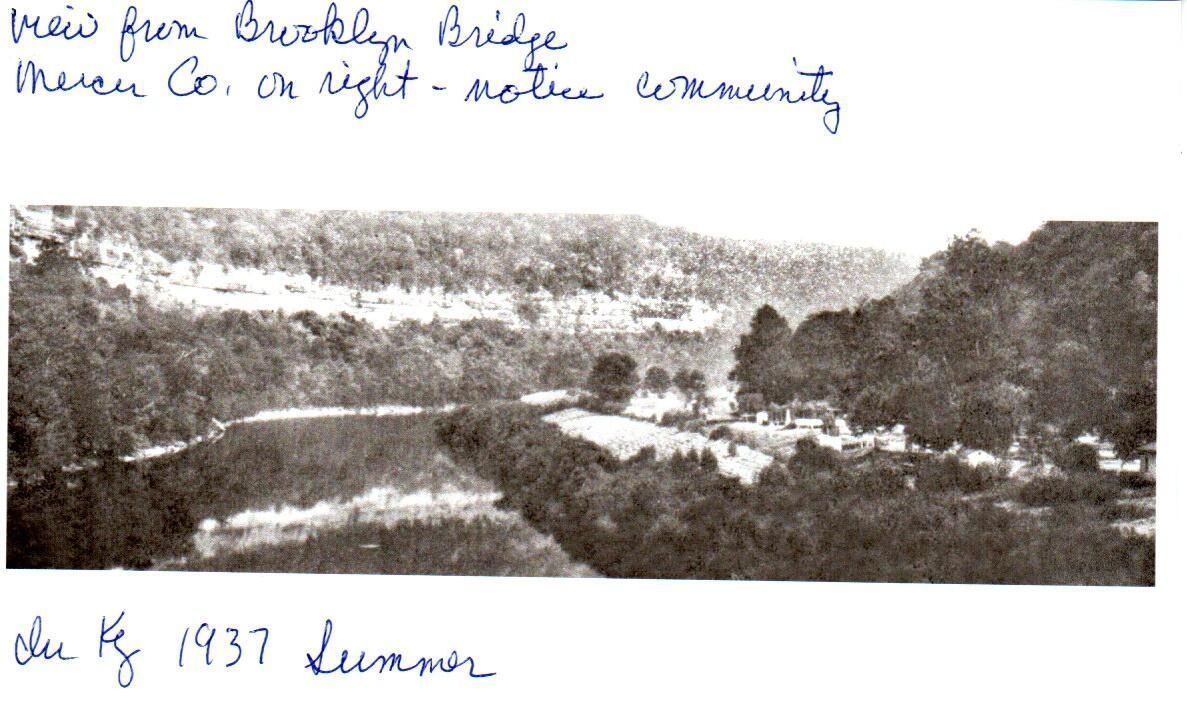 view from Brooklyn Bridge
Mercer Co. on right - notice community
In Ky 1937 Summer